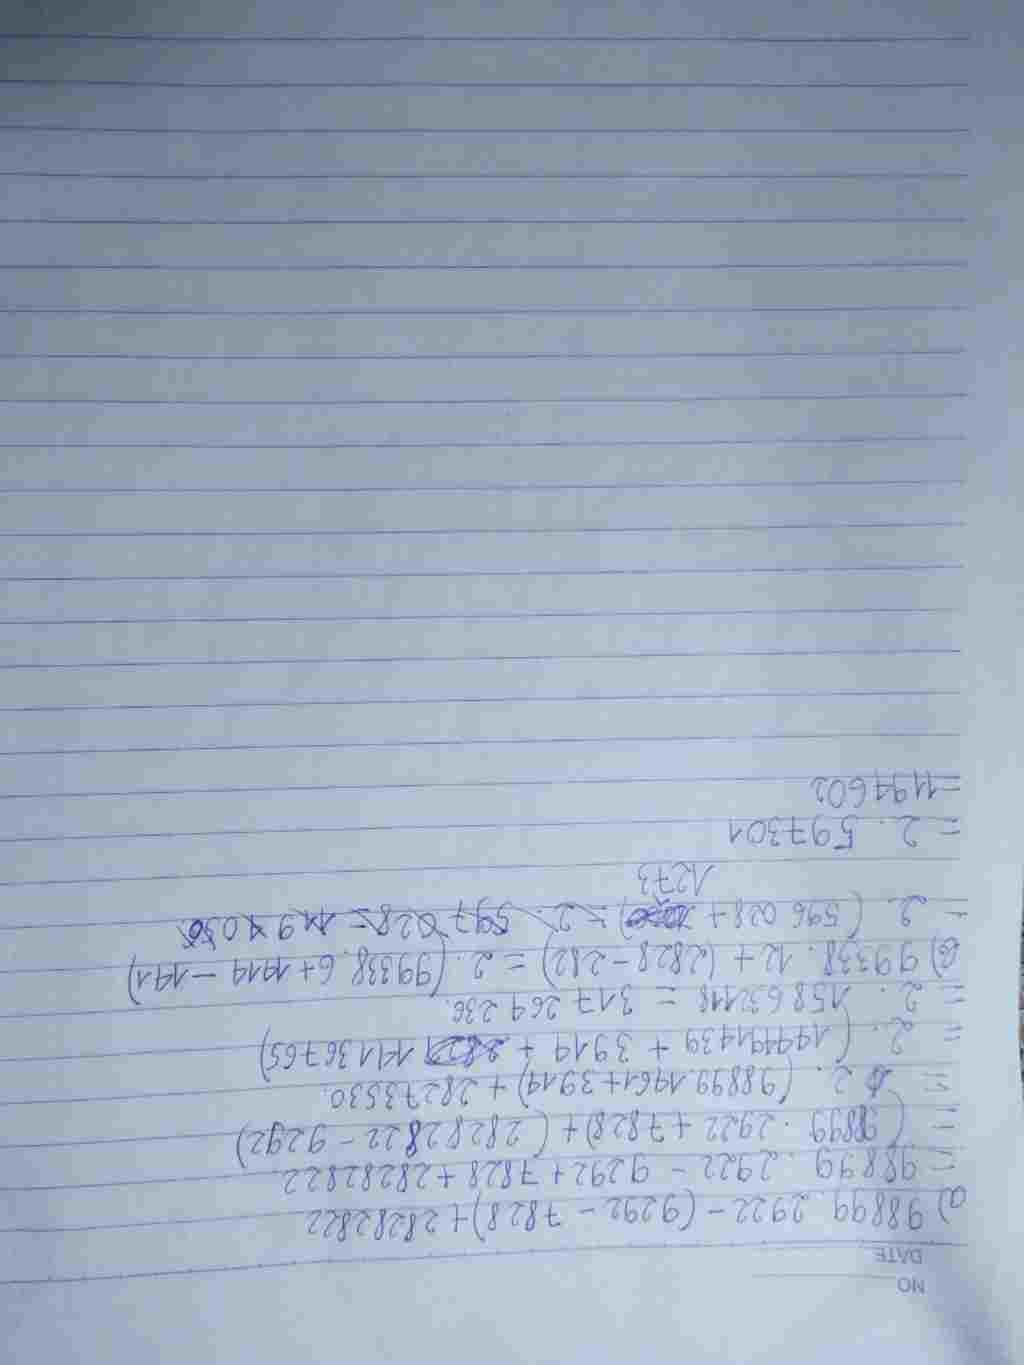 NO
DATE
a) 98899. 2922 - (9292 - 7828) + 28282822
= 98899. 2922 - 9292 + 7828 + 28282822
= (98899 . 2922 + 7828) + (28282822 - 9292)
= 2. (98899. 1461 + 3914) + 28273530.
= 2. (144491439 + 3914 + 14136765)
= 2. 158632118 = 317 264 236.
b) 99338. 12 + (2828 - 282) = 2. (99338. 6 + 1414 - 141)
= 2. (596 028 + ) = 2. 597 028 =
1273
= 2. 597301
= 1194602